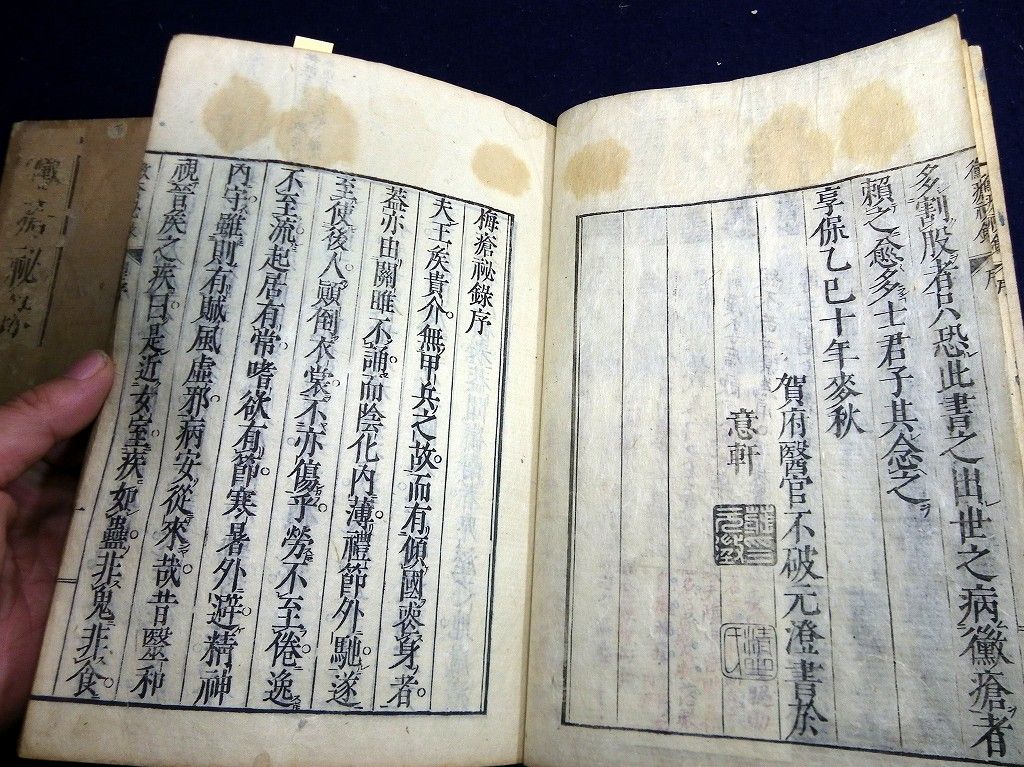 多割股者只恐此書之出世之病黴瘡者
賴之愈多士君子其念之
享保乙巳十年麥秋
賀府醫官不破元澄書於
意軒
梅瘡祕錄序
夫王矦貴介無甲兵之故而有傾國喪身者
蓋亦由關雎不誦而陰化內薄禮節外馳遂
至使後人顚倒衣裳不亦傷乎勞不至倦逸
不至流起居有常嗜欲有節寒暑外避精神
內守雖則有賊風虛邪病安從來哉昔醫和
視晉矦之疾曰是近女室疾如蠱非鬼非食